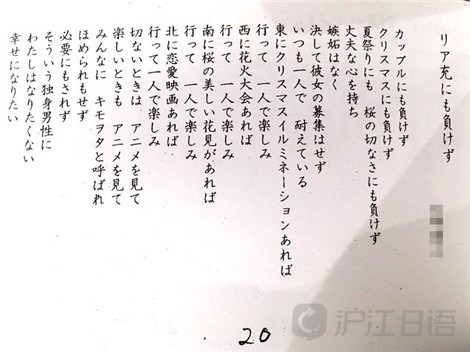 リア充にも負けず
カップルにも負けず
クリスマスにも負けず
夏祭りにも　桜の切なさにも負けず
丈夫な心を持ち
嫉妬はなく
決して彼女の募集はせず
いつも一人で　耐えている
東にクリスマスイルミネーションあれば
行って　一人で楽しみ
西に花火大会あれば
行って　一人で楽しみ
南に桜の美しい花見があれば
行って　一人で楽しみ
北に恋愛映画あれば
行って一人で楽しみ
切ないときは　アニメを見て
楽しいときも　アニメを見て
みんなに　キモヲタと呼ばれ
ほめられもせず
必要にもされず
そういう独身男性に
わたしはなりたくない
幸せになりたい
20
沪江日语